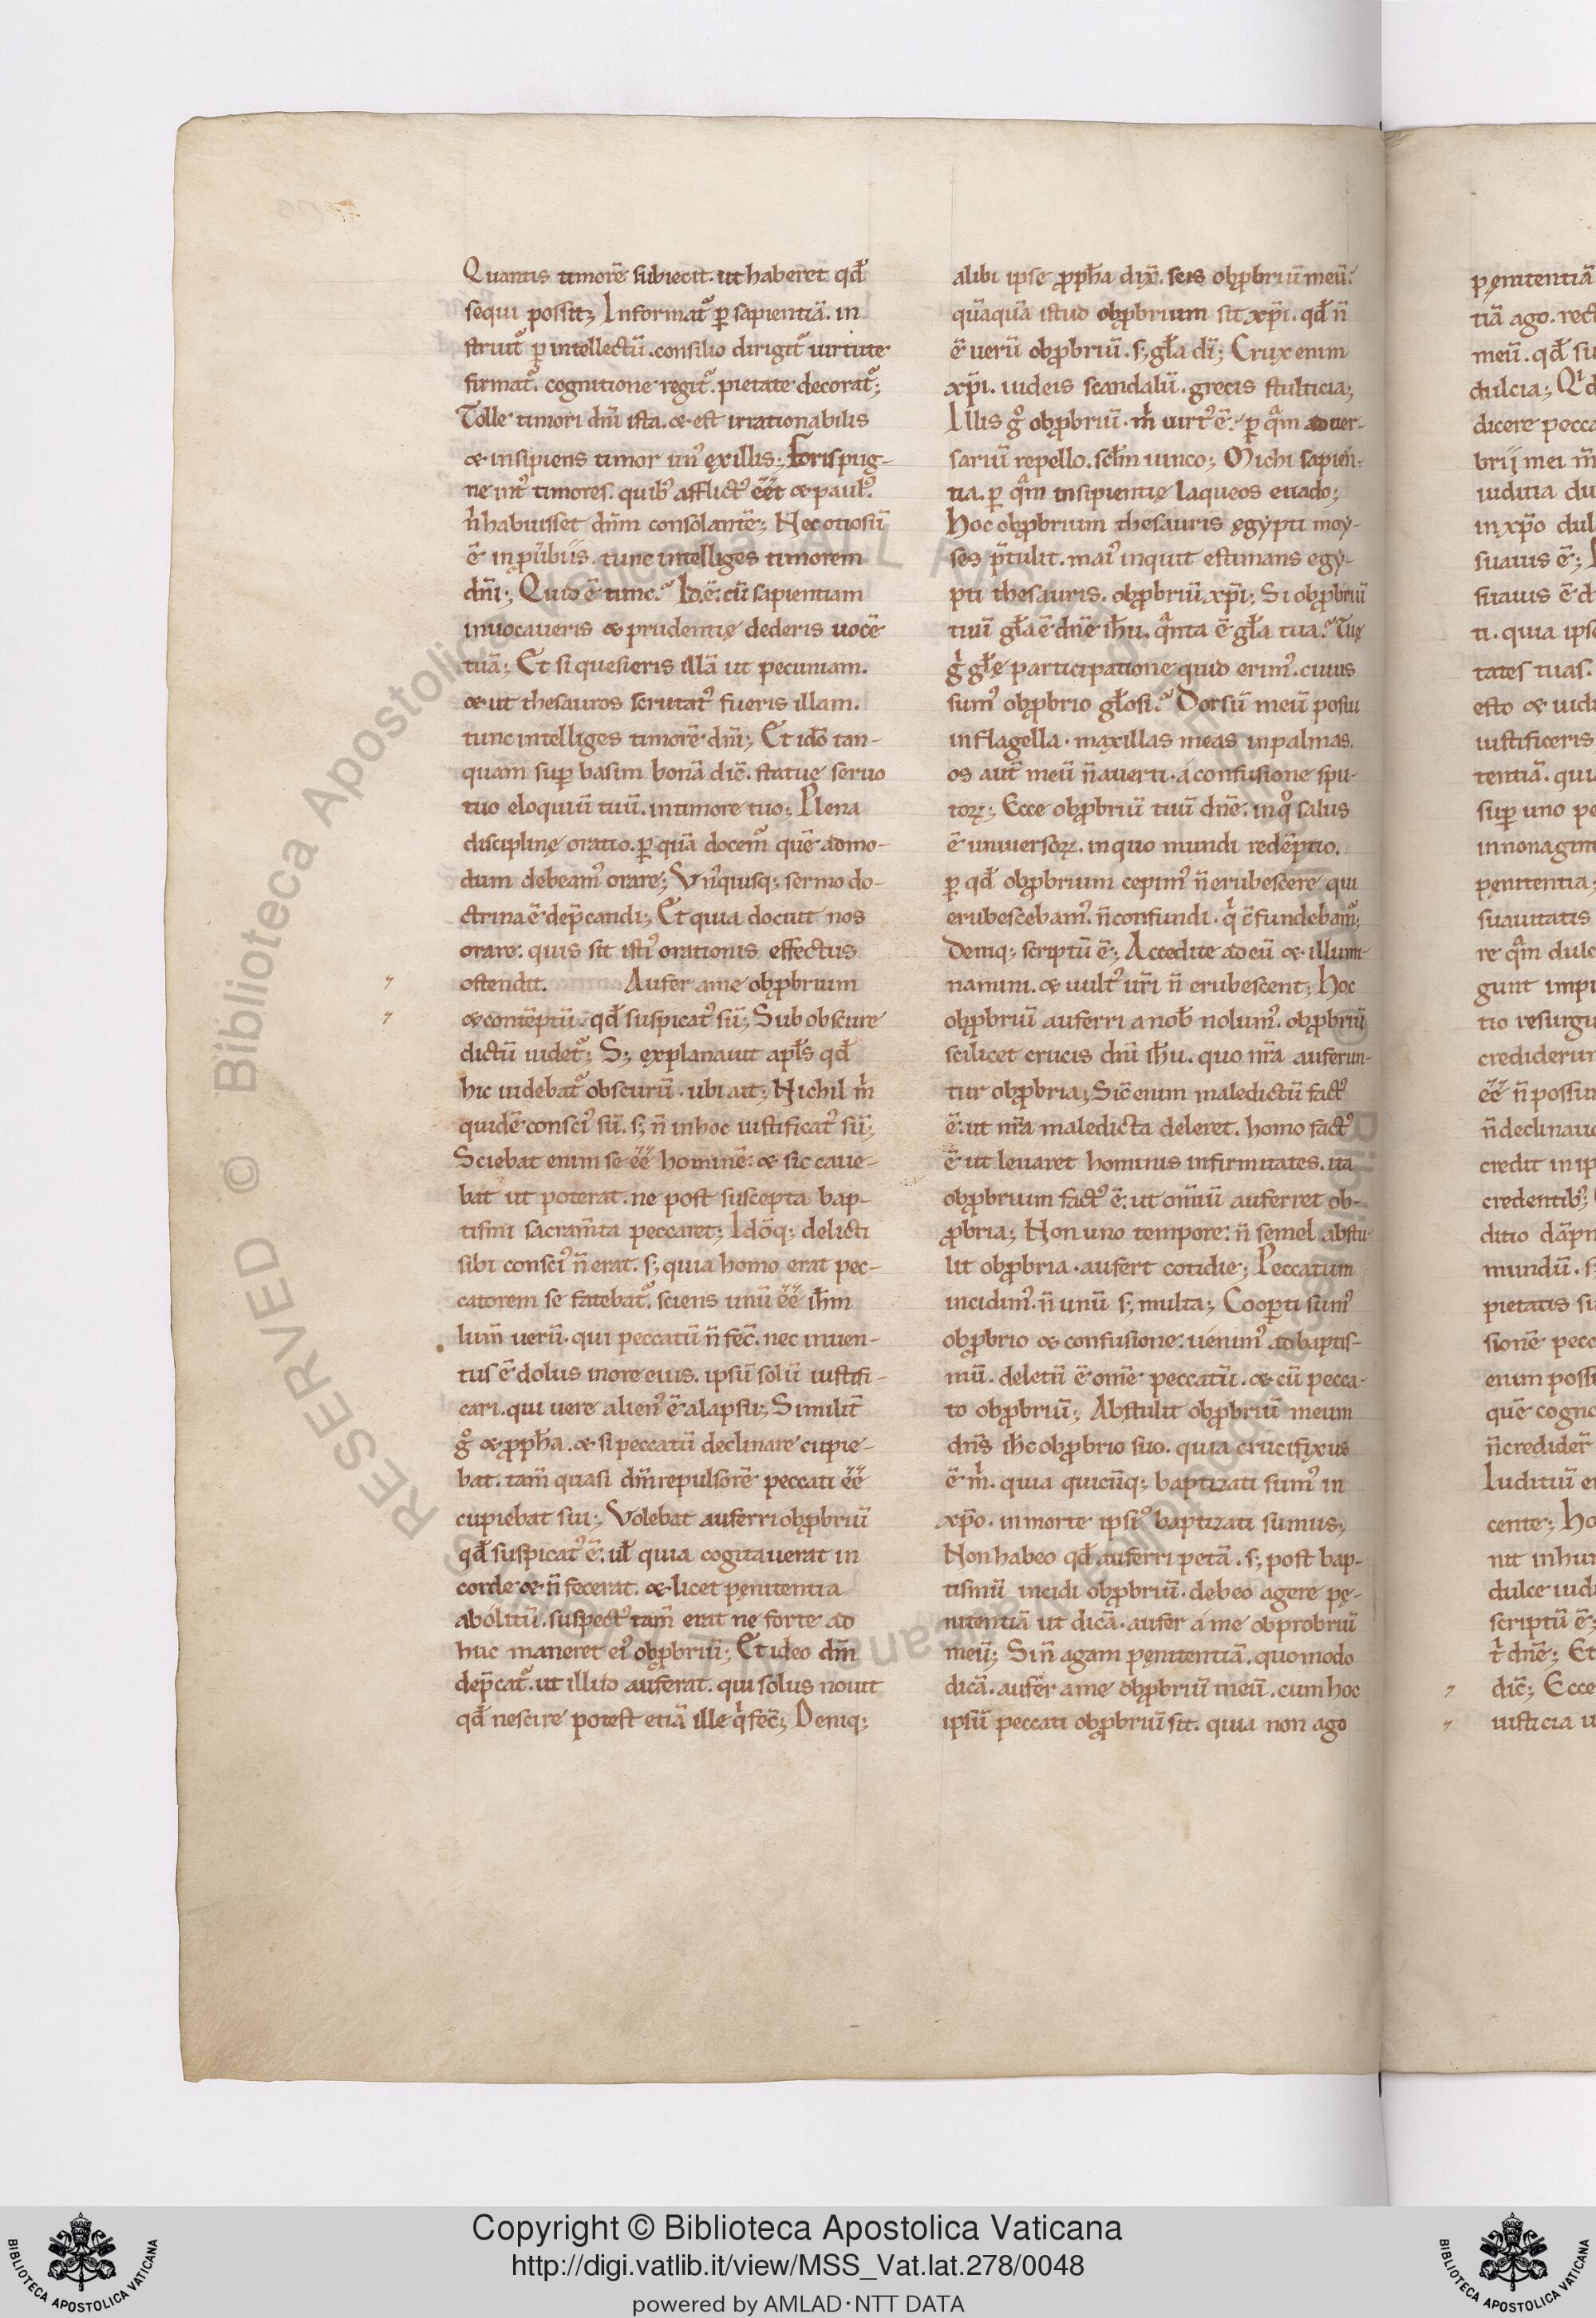 Quantis timorē subiecit. ut haberet qd̄
sequi possit; Informat᷑ ꝑ sapientiā. in
struit᷑ ꝑ intellectū. consilio dirigit᷑ uirtute
firmat᷑. cognitione regit᷑. pietate decorat᷑;
Tolle timori dn̄i ista. & est irrationabilis
& insipiens timor un᾽ ex illis; Foris pug-
ne int᷑ timores. quib᾽ afflict᾽ eēt & paul᾽.
n̄ habuisset dn̄m consolantē; Nec otiosū
ē in ꝓuerbiis. tunc intelliges timorem
dn̄i; Quid ē tunc? Id.ē. cū sapientiam
inuocaueris & prudentię dederis uocē
tuā; Et si quesieris illā ut pecuniam.
& ut thesauros scrutat᾽ fueris illam.
tunc intelliges timorē dn̄i; Et idō tan-
quam suꝑ basim bonā dic̄. statue seruo
tuo eloquiū tuū. in timore tuo; Plena
disciplinę oratio. ꝑ quā docem᷑ quē admo-
dum debeam᾽ orare; Vn᾽quisq; sermo do-
ctrina ē dep̄candi; Et quia docuit nos
orare. quis sit isti᾽ orationis effectus
ostendit. Aufer a me obꝓbrium
& contēptū. qd̄ suspicat᾽ sū; Sub obscure
dictū uidet᷑; S; explanauit apl̄s qd̄
hic uidebat᷑ obscurū. ubi ait; Nichil m̄
quidē consci᾽ sū. s; n̄ in hoc iustificat᾽ sū;
Sciebat enim se eē hominē. & sic caue-
bat ut poterat. ne post suscepta bap-
tismi sacram̄ta peccaret; Idōq; delicti
sibi consci᾽ n̄ erat. s; quia homo erat pec-
catorem se fatebat᷑. sciens unū eē ih̄m
lum̄ uerū. qui peccatū n̄ fec̄. nec inuen-
tus ē dolus in ore eius. ipsū solū iustifi-
cari. qui uere alien᾽ ē a lapsu; Similit̄
g° & ꝓph̄a. & si peccatū declinare cupie-
bat. tam̄ quasi dn̄m repulsorē peccati eē
cupiebat sui; Volebat auferri obꝓbriū
qd̄ suspicat᾽ ē. ul̄ quia cogitauerat in
corde & n̄ fecerat. & licet pęnitentia
abolitū. suspect᾽ tam̄ erat ne forte ad
huc maneret ei᾽ obꝓbriū; Et ideo dn̄m
dep̄cat᷑. ut illud auferat. qui solus nouit
qd̄ nescire potest etiā ille q̇ fec̄; Deniq;
alibi ipse ꝓph̄a dix̄. scis obꝓbriū meū.
quāquā istud obꝓbrium sit xp̄i. qd̄ n̄
ē uerū obꝓbriū. s; gl̄a dī; Crux enim
xp̄i. iudeis scandalū. grecis stulticia;
Illis g° obꝓbriū. m̄ uirt᾽ ē. ꝑ qᵃm aduer-
sariū repello. scl̄m uinco; Michi sapien-
tia. ꝑ qᵃm insipientię laqueos euado;
Hoc obꝓbrium thesauris ęgypti moy-
ses p̄tulit. mai᾽ inquit estimans egy-
pti thesauris. obꝓbriū xp̄i; Si obꝓbriū
tuū gl̄a ē dn̄e ih̄u. qᵃnta ē gl̄a tua? Tuę
g° gl̄ę participatione quid erim᾽. cuius
sum᾽ obꝓbrio gl̄osi? Dorsū meū posui
in flagella. maxillas meas in palmas.
os aut̄ meū n̄ auerti. a confusione spu-
toꝝ; Ecce obꝓbriū tuū dn̄e. in q° salus
ē uniuersoꝝ. in quo mundi redēptio.
ꝑ qd̄ obꝓbrium cepim᾽ n̄ erubescere qui
erubescebam᾽. n̄ confundi. q̇ c̄fundebam᷑;
Deniq; scriptū ē; Accedite ad eū & illumi-
namini. & uult᾽ ur̄i n̄ erubescent; Hoc
obꝓbriū auferri a nob̄ nolum᾽. obꝓbriū
scilicet crucis dn̄i ih̄u. quo nr̄a auferun-
tur obꝓbria; Sic̄ enim maledictū fact᾽
ē. ut nr̄a maledicta deleret. homo fact᾽
ē ut leuaret hominis infirmitates. ita
obꝓbrium fact᾽ ē. ut omniū auferret ob-
ꝓbria; Non uno tempore. n̄ semel abstu-
lit obꝓbria. aufert cotidie; Peccatum
incidim᾽. n̄ unū s; multa; Cooꝑti sum᾽
obꝓbrio & confusione. uenim᾽ ad baptis-
mū. deletū ē om̄e peccatū. & cū pecca-
to obꝓbriū; Abstulit obꝓbriū meum
dn̄s ih̄c obꝓbrio suo. quia crucifixus
ē m̄. quia quicūq; baptizati sum᾽ in
xp̄o. in morte ipsi᾽ baptizati sumus;
Non habeo qd̄ auferri petā. s; post bap-
tismū incidi obꝓbriū. debeo agere pę-
nitentiā ut dicā. aufer a me obprobriū
meū; Si n̄ agam pęnitentiā. quomodo
dicā. aufer a me obꝓbriū meū. cum hoc
ipsū peccati obꝓbriū sit. quia non ago
pęnitentiā
tiā ago. rect
meū. qd̄ su
dulcia; Q
dicere pecca
brii mei m̄
iuditia du
in xp̄o dul
suauis ē;
suauis ē d
ti. quia ips
tates tuas.
esto & uidi
iustificeris
tentiā. qui
suꝑ uno pe
in nonagint
pęnitentia;
suauitatis
re qᵃm dulc
gunt impi
tio resurgu
crediderun
eē n̄ possun
n̄ declinauc
credit in ip
credentib᾽;
ditio dāpn
mundū. s
pietatis su
sionē pecc
enim possi
quē cogno
n̄ credider̄
Iuditiū e
cente; Ho
nit in hun
dulce iudi
scriptū ē;
t̄ dn̄e; Et
dic̄; Ecce
iusticia u
RESERVED © Biblioteca Apostolica Vaticana. ALL
Copyright © Biblioteca Apostolica Vaticana
http://digi.vatlib.it/view/MSS_Vat.lat.278/0048
powered by AMLAD·NTT DATA
BIBLIOTECA APOSTOLICA VATICANA
BIBLIOTECA APOSTOLICA VATICANA